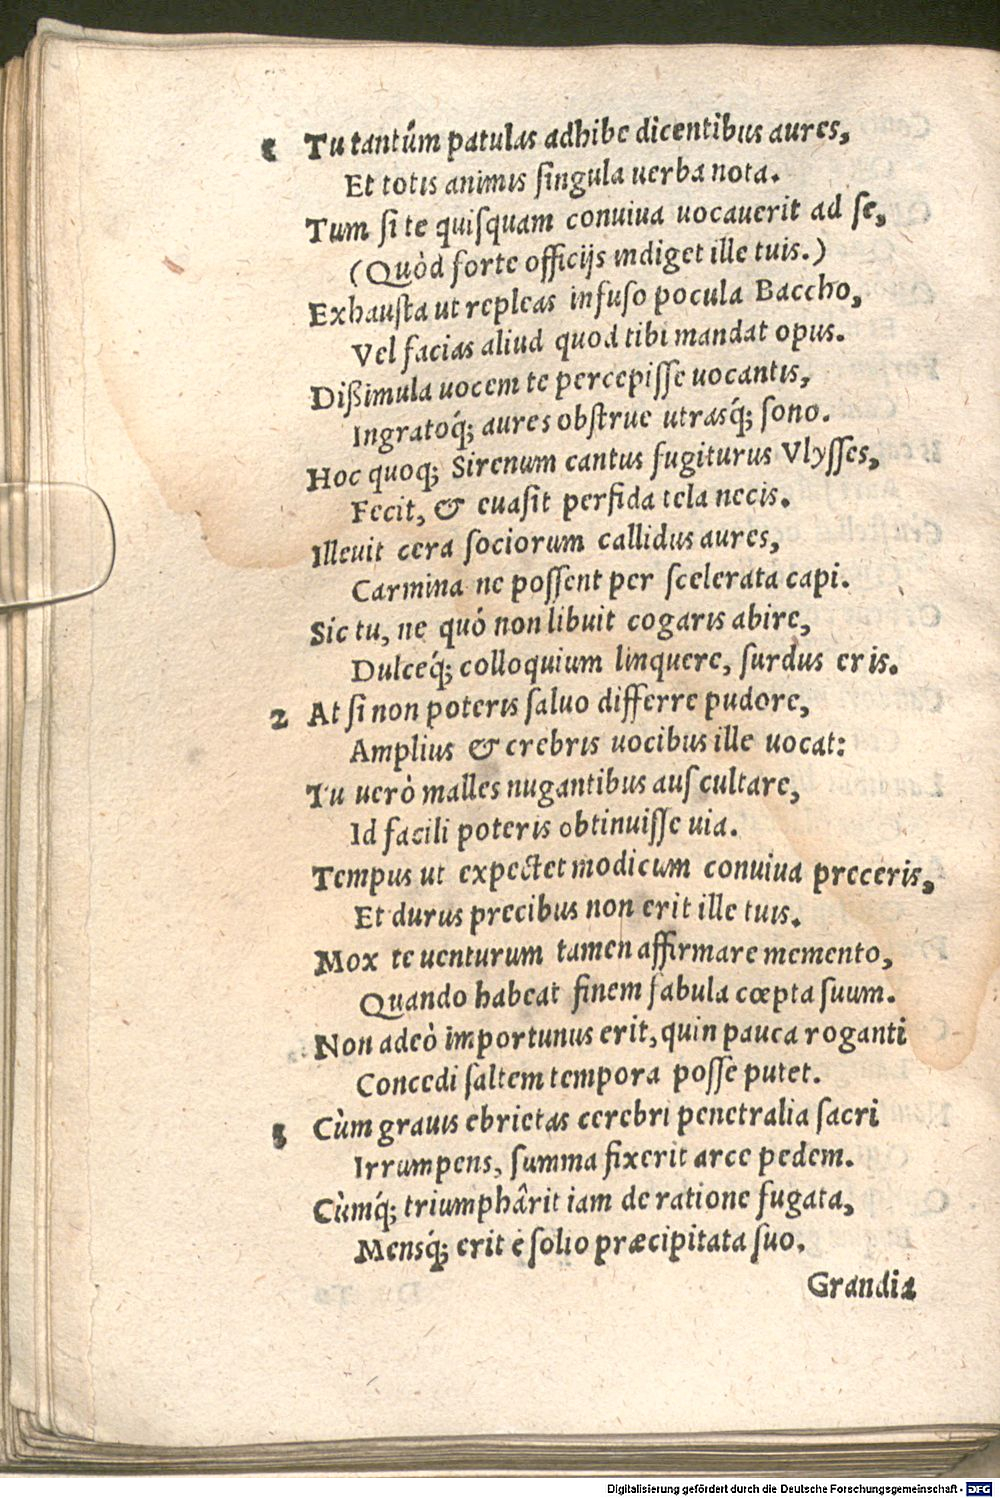 1 Tu tantúm patulas adhibe dicentibus aures,
Et totis animis ſingula uerba nota.
Tum ſi te quiſquam conuiua uocauerit ad ſe,
(Quòd forte officijs indiget ille tuis.)
Exhauſta ut repleas infuſo pocula Baccho,
Vel facias aliud quod tibi mandat opus.
Dißimula uocem te percepiſſe uocantis,
Ingratoq́; aures obſtrue utrasq́; ſono.
Hoc quoq; Sirenum cantus fugiturus Vlyſſes,
Fecit, & euaſit perfida tela necis.
Illeuit cera ſociorum callidus aures,
Carmina ne poſſent per ſcelerata capi.
Sic tu, ne quó non libuit cogaris abire,
Dulceq́; colloquium linquere, ſurdus eris.
2 At ſi non poteris ſaluo differre pudore,
Amplius & crebris uocibus ille uocat:
Tu uerò malles nugantibus auſcultare,
Id facili poteris obtinuiſſe uia.
Tempus ut expectet modicum conuiua preceris,
Et durus precibus non erit ille tuis.
Mox te uenturum tamen affirmare memento,
Quando habeat finem fabula cœpta ſuum.
Non adeò importunus erit, quin pauca roganti
Concedi ſaltem tempora poſſe putet.
3 Cùm grauis ebrietas cerebri penetralia ſacri
Irrumpens, ſumma fixerit arce pedem.
Cùmq́; triumphârit iam de ratione fugata,
Mensq́; erit è ſolio præcipitata ſuo.
Grandia
Digitalisierung gefördert durch die Deutsche Forschungsgemeinschaft - DFG